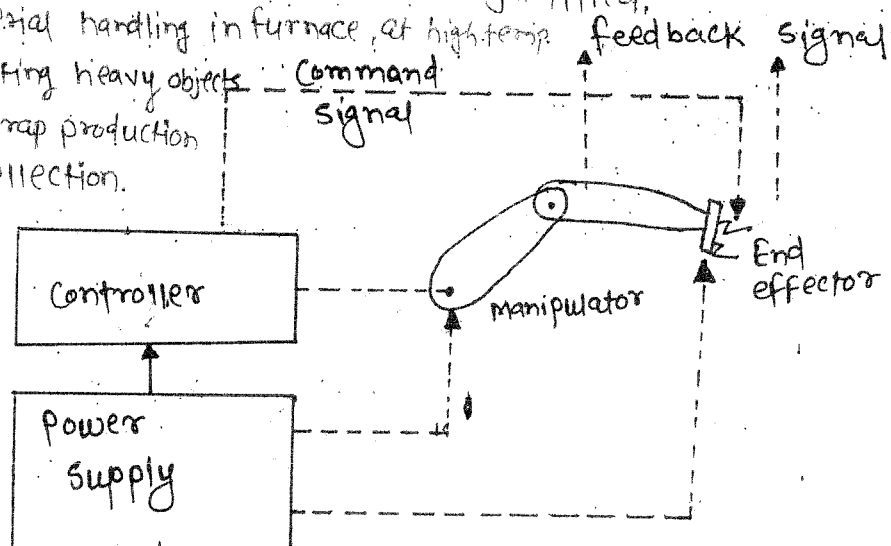 rial handling in furnace, at high temp.
feedback signal
ting heavy objects
Command
signal
rap production
llection.
Controller
manipulator
End
effector
Power
Supply